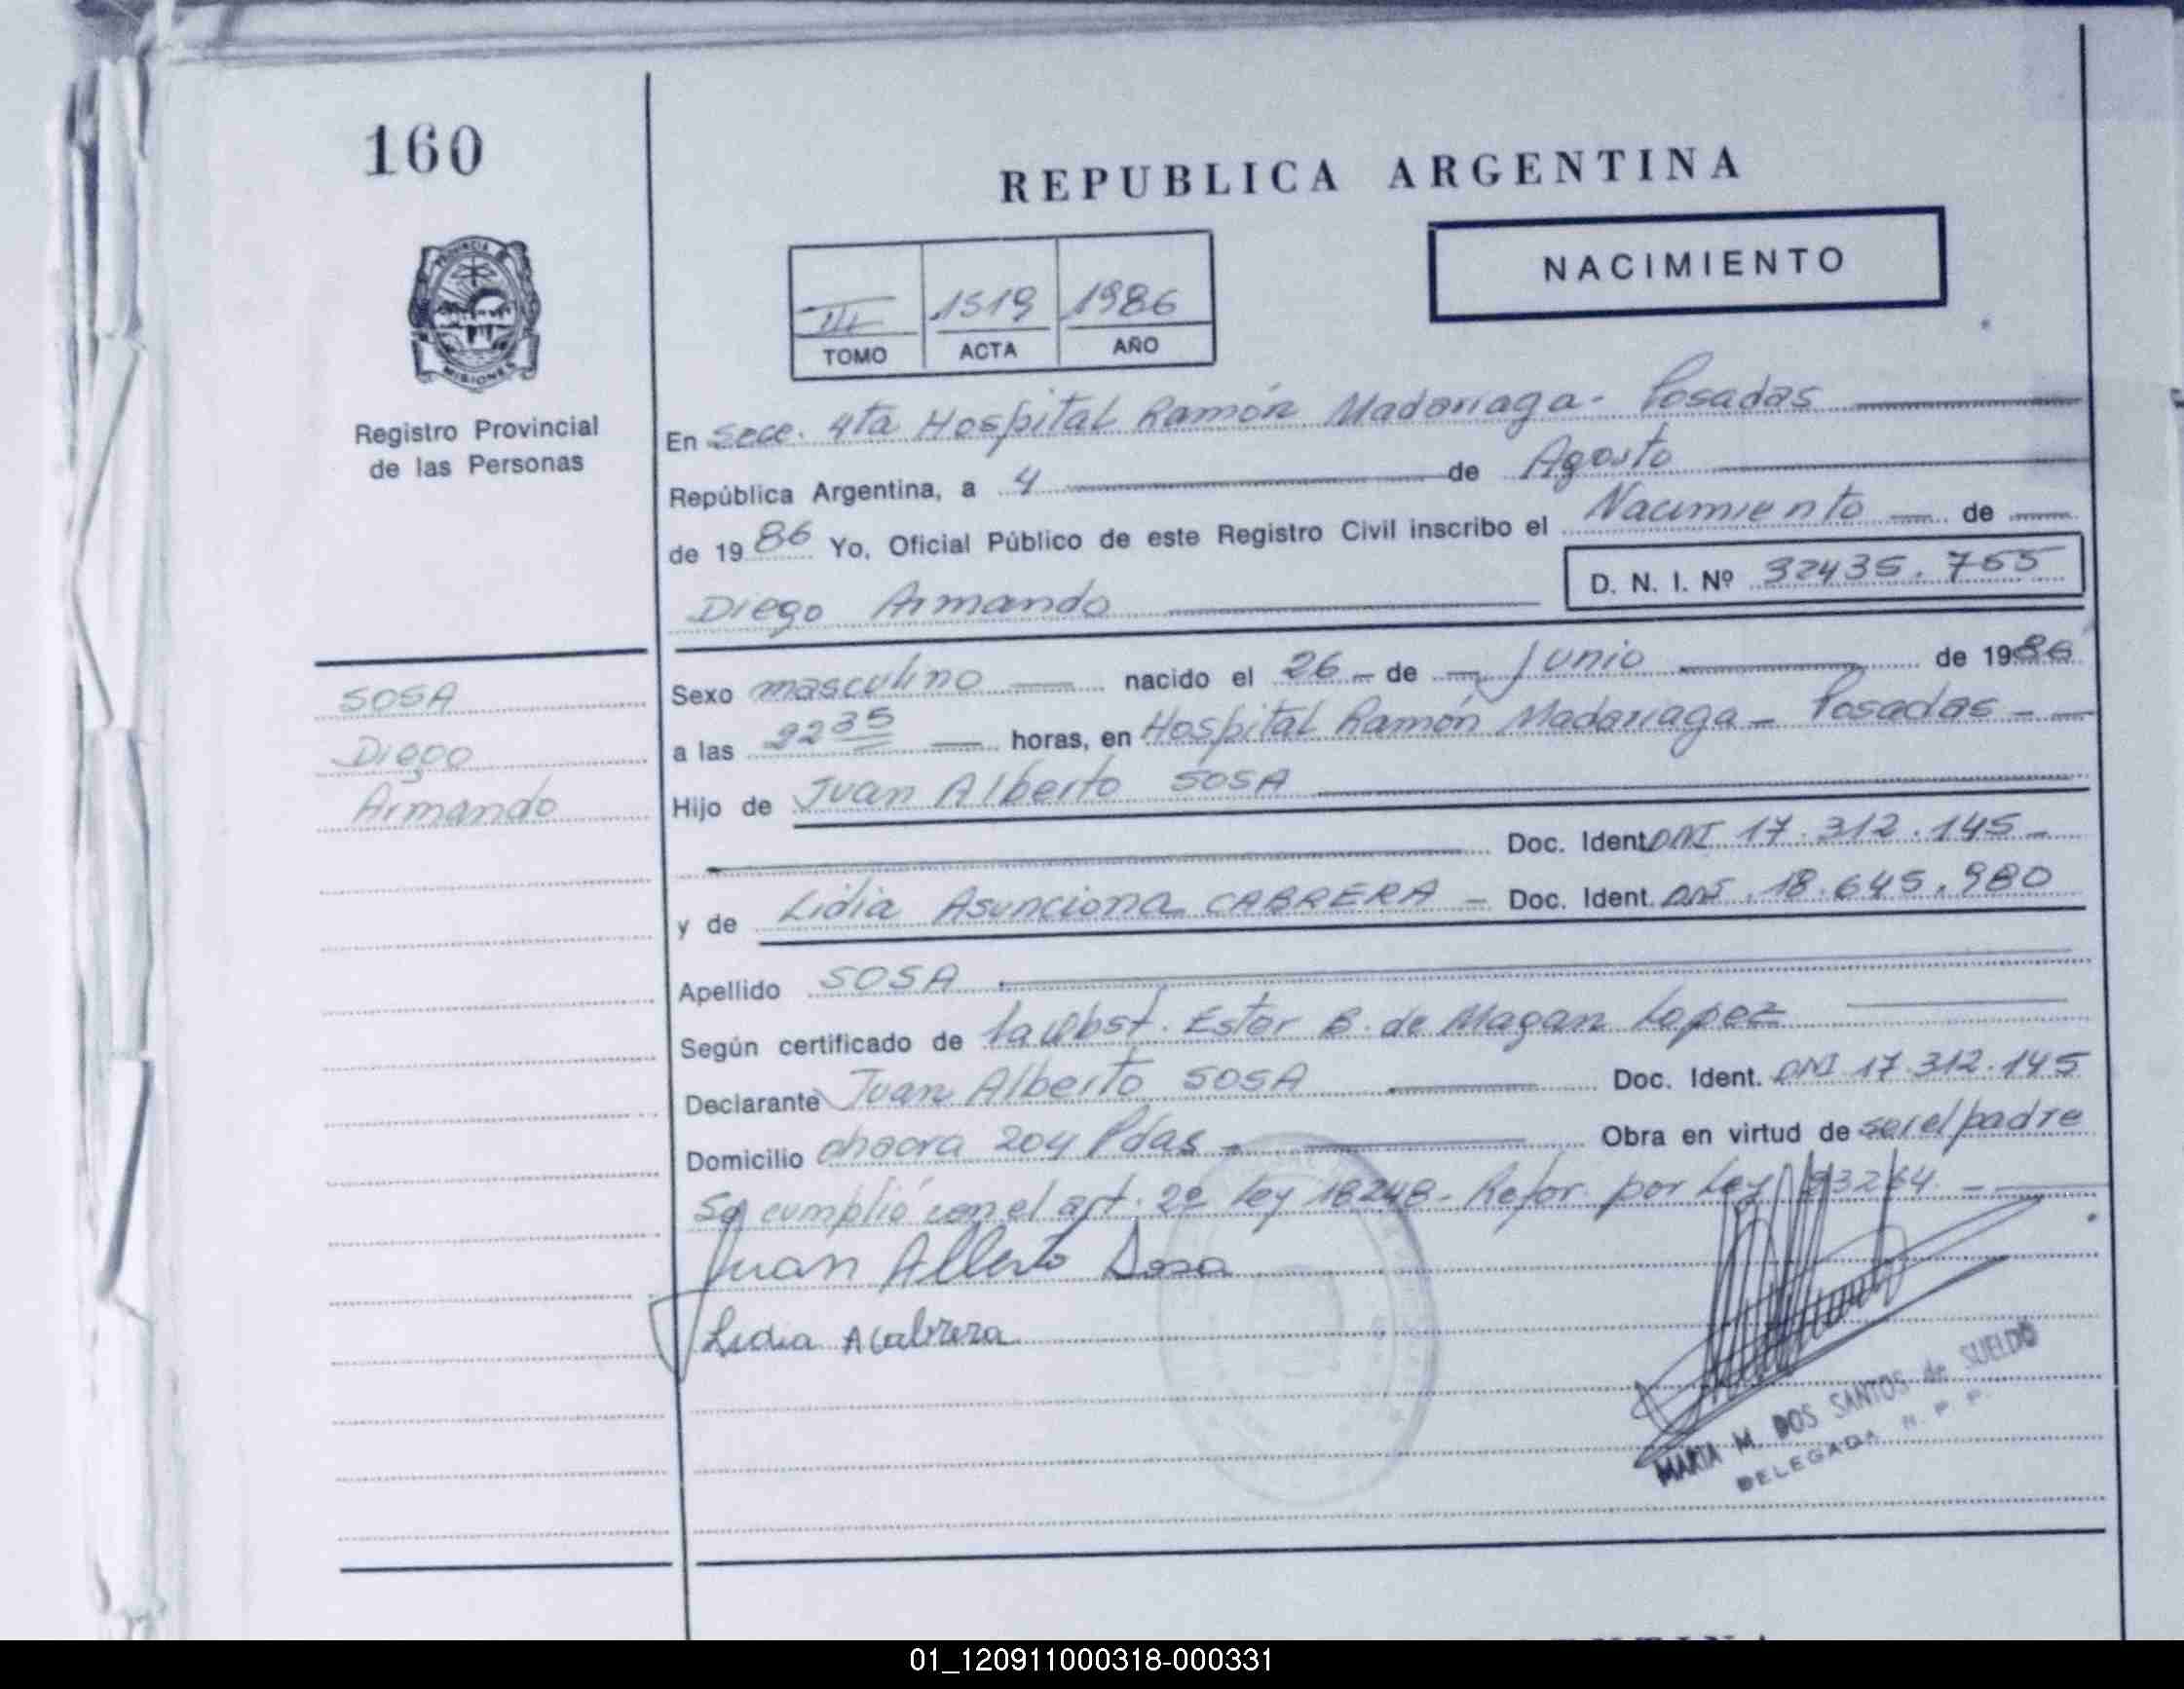 160
REPUBLICA ARGENTINA
NACIMIENTO
PROVINCIA
MISIONES
III 1519 1986
TOMO ACTA AÑO
Registro Provincial
de las Personas
En Secc. 4ta Hospital Ramón Madariaga - Posadas
República Argentina, a 4 de Agosto
de 1986 Yo, Oficial Público de este Registro Civil inscribo el Nacimiento de
Diego Armando D. N. I. Nº 32435.755
SOSA
Diego
Armando
Sexo masculino nacido el 26 de Junio de 1986
a las 22 35 horas, en Hospital Ramón Madariaga - Posadas -
Hijo de Juan Alberto SOSA
Doc. Ident. DNI 17.312.145 -
y de Lidia Asunciona CABRERA - Doc. Ident. DNI. 18.645.980
Apellido SOSA
Según certificado de la Obst. Ester B. de Magan Lopez
Declarante Juan Alberto SOSA Doc. Ident. DNI 17.312.145
Domicilio chacra 204 Pdas - Obra en virtud de ser el padre
Se cumplió con el art. 2º Ley 18248 - Refor. por Ley 23264 -
Juan Alberto Sosa
Lidia A Cabrera
MARIA M. DOS SANTOS de SUELDO
DELEGADA R. P. P.
01_120911000318-000331